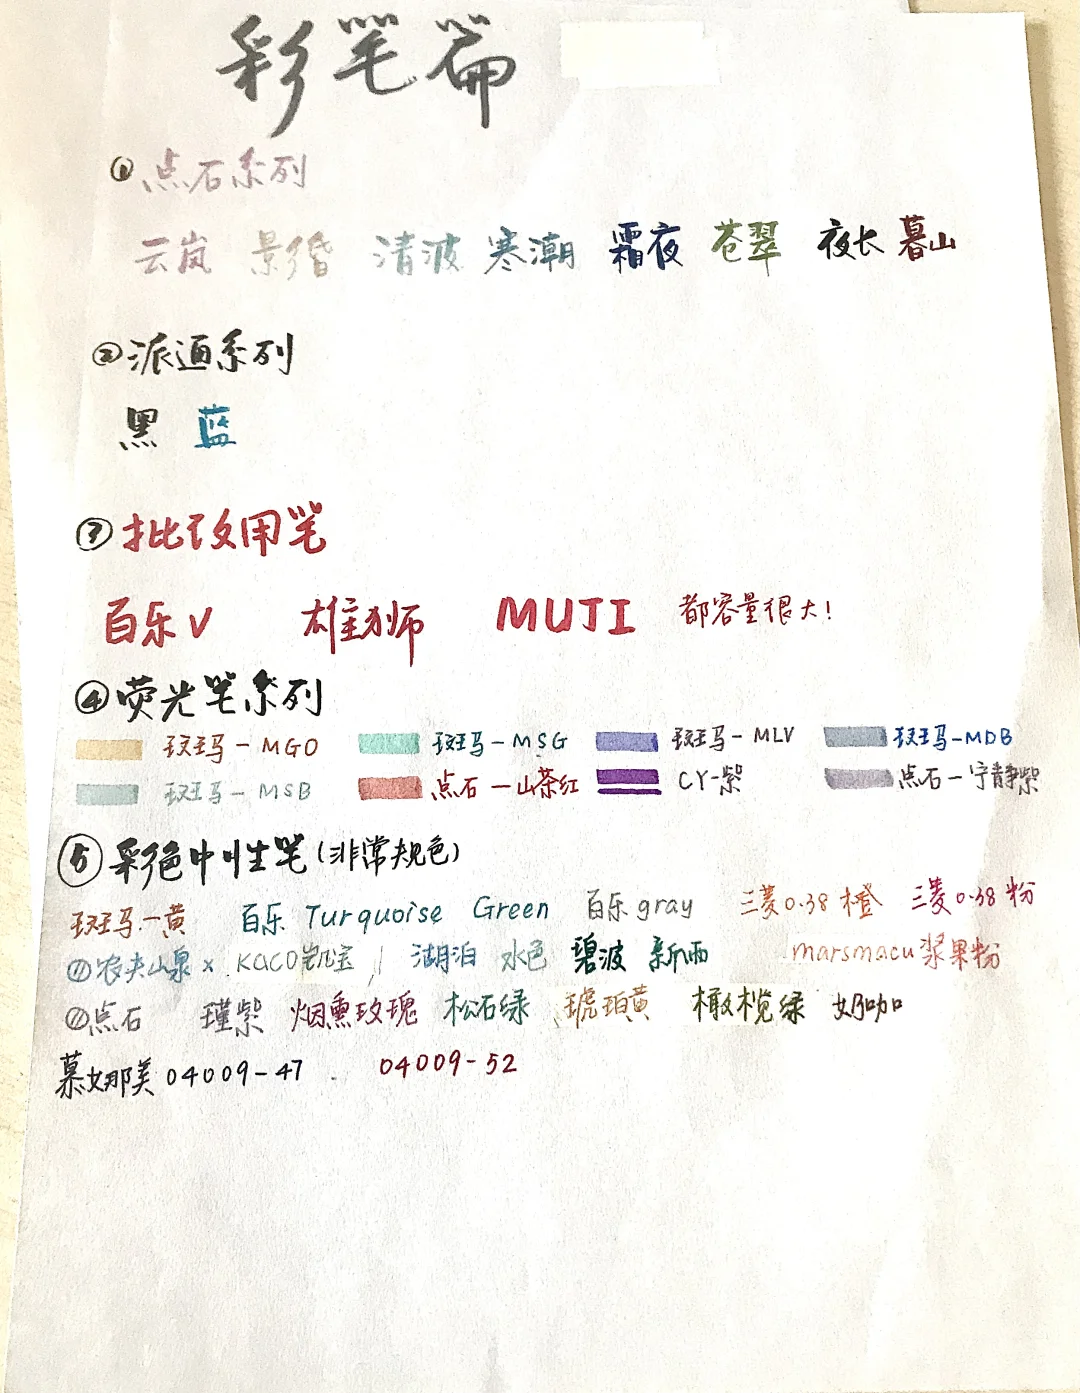 彩笔篇
①点石系列
云岚 景昏 清波 寒潮 霜夜 苍翠 夜长 暮山
②派通系列
黑 蓝
③批改用笔
百乐V 雄狮 MUJI 都容量很大!
④荧光笔系列
斑马-MGO 斑马-MSG 斑马-MLV 斑马-MDB
斑马-MSB 点石-山茶红 CY-紫 点石-宁静紫
⑤彩色中性笔(非常规色)
斑马-黄 百乐 Turquoise Green 百乐gray 三菱0.38 橙 三菱0.38 粉
①农夫山泉× KACO凯宝 / 湖泊 水色 碧波 新雨 marsmacu浆果粉
②点石 瑾紫 烟熏玫瑰 松石绿 琥珀黄 橄榄绿 奶咖
慕娜美04009-47 04009-52